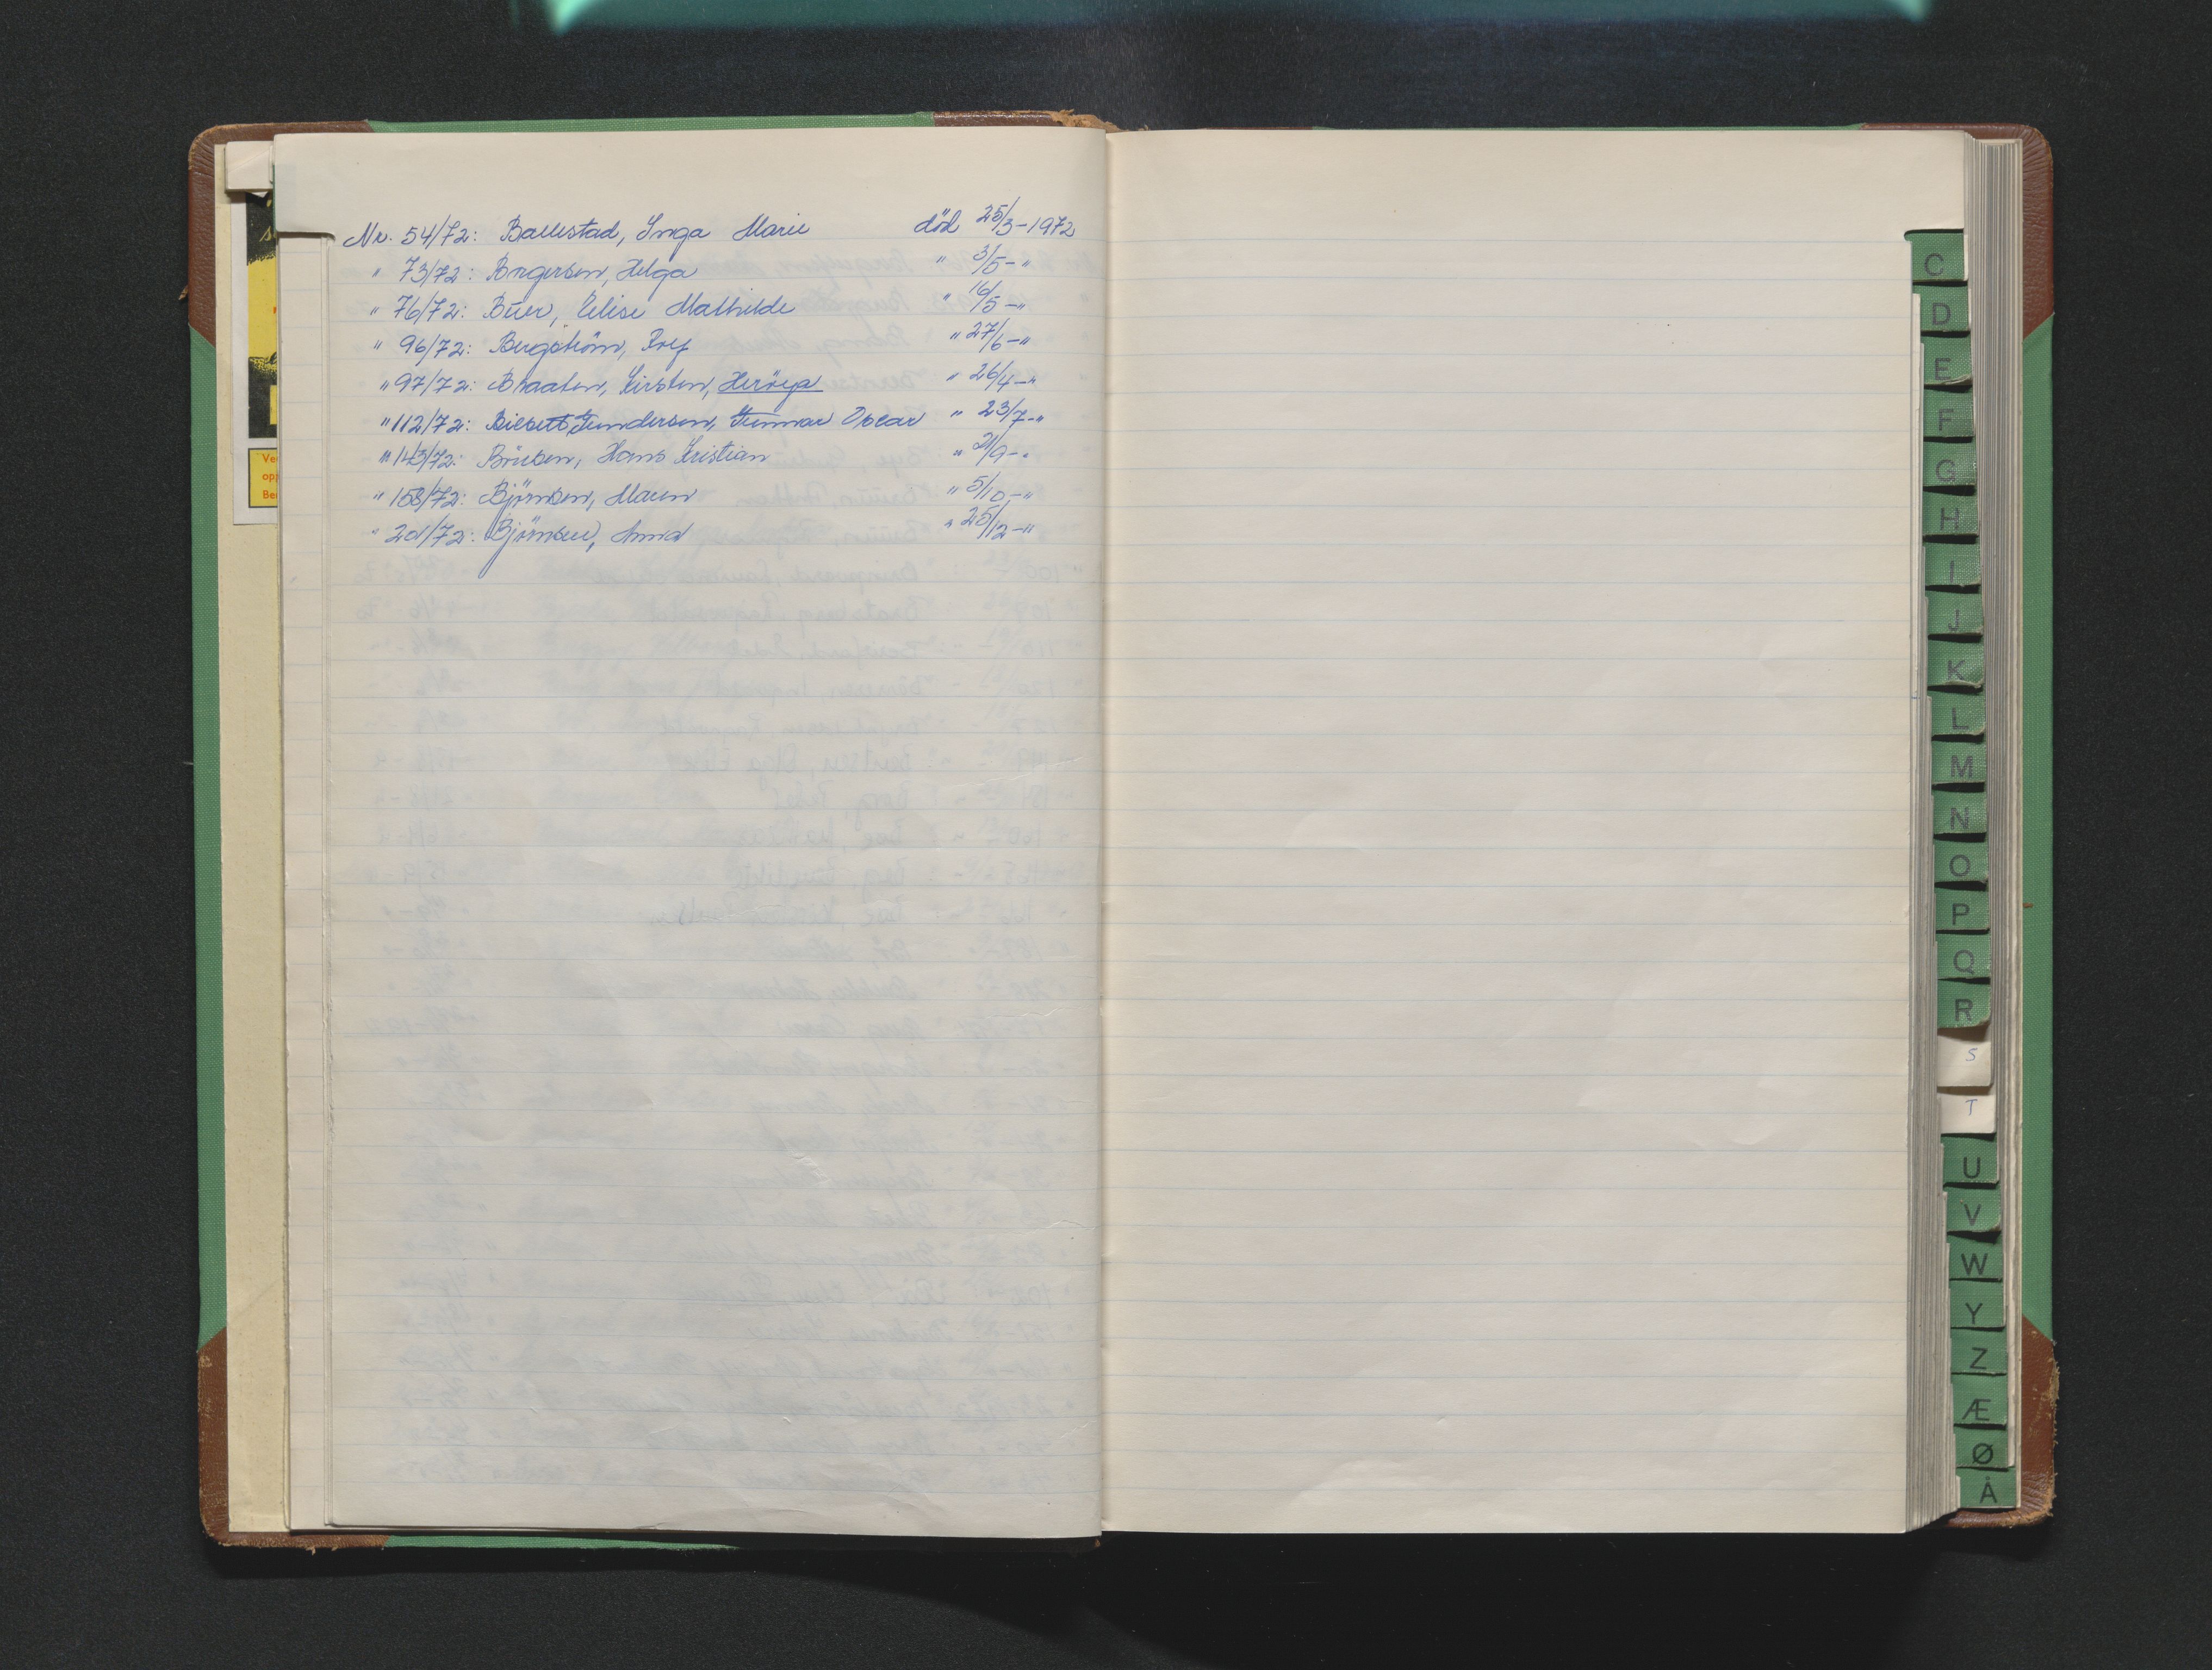 Nr. 54/72: Ballestad, Inga Marie död 25/3-1972
" 73/72: Borgersen, Helga " 3/5-"
" 76/72: Buer, Elise Mathilde " 16/5-"
" 96/72: Bergström, Roy " 27/6-"
" 97/72: Braaten, Kirsten, Heröya " 26/4-"
" 112/72: Gundersen, Gunnar Oscar " 23/7-"
" 143/72: Hans Kristian " 21/9-"
" 158/72: Björnsen, Maren " 5/10-"
" 201/72: Björnsen, " 25/12-"
C
D
E
F
G
H
I
J
K
L
M
N
O
P
Q
R
S
T
U
V
W
Y
Z
Æ
Ø
Å